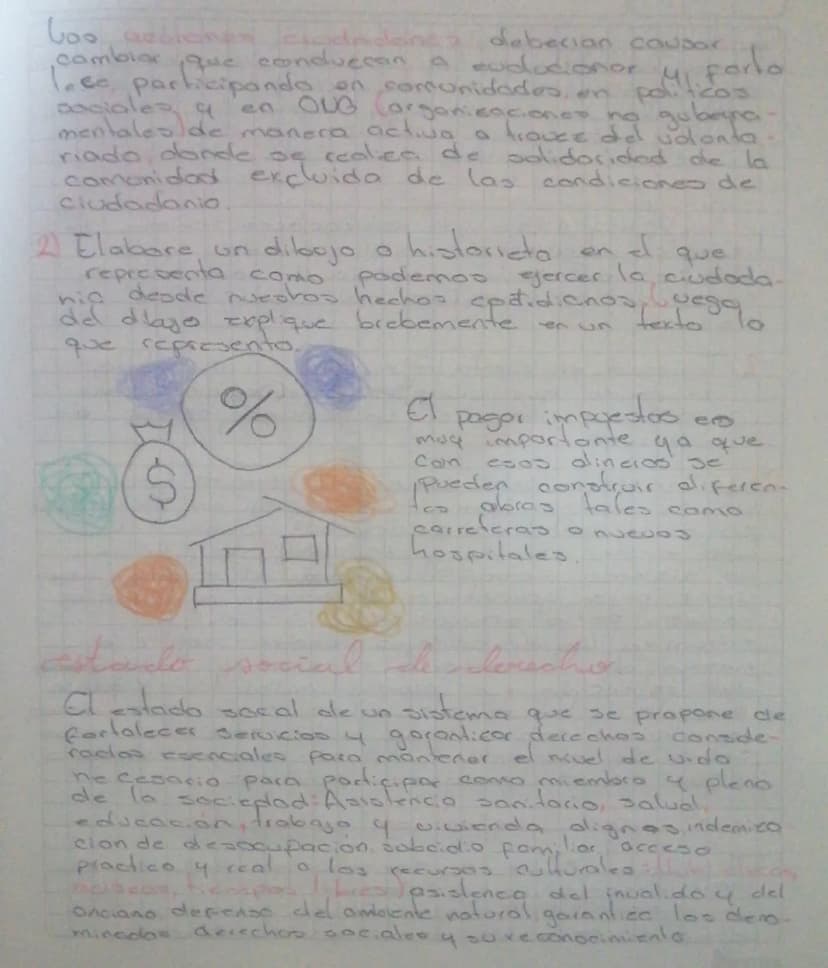 Las acciones ciudadanas deberian causar
cambios que conduzcan a evolucionar y forta
lece, participando en comunidades, en politicas
sociales y en ONG (organizaciones no guberna-
mentales) de manera activa a travez del volunta-
riado, donde se realice de solidaridad de la
comunidad excluida de las condiciones de
ciudadania.
2) Elabore un dibujo o historieta en el que
represente como podemos ejercer la ciudada-
nia desde nuestros hechos cotidianos, luego
del dibujo explique brebemente en un texto lo
que represento.
%
$
El pagar impuestos es
muy importante ya que
con esos dineros se
pueden construir diferen-
tes obras tales como
carreteras o nuevos
hospitales.
estado social de derecho
El estado social de un sistema que se propone de
fortalecer servicios y garanticar derechos conside-
rados esenciales para mantener el nivel de vida
necesario para participar como miembro y pleno
de la sociedad: Asistencia sanitaria, salud,
educación, trabajo y vivienda dignas, indemiza
cion de desocupación, subcidio familiar, acceso
practico y real a los recursos culturales
tiempos libres) asistenca del invalido y del
anciano, defensa del ambiente natural, garantice los deno-
minados derechos sociales y su reconocimiento